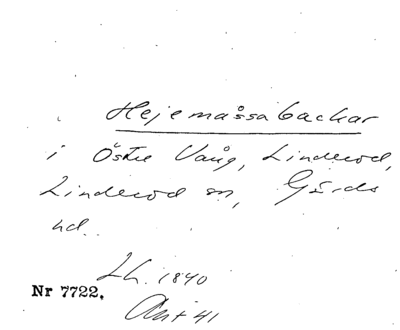 Hejemåssabackar
i Östre Vång, Linderod,
Linderod sn, Gärds
hd.
Lh. 1840
Nr 7722.
Akt 41